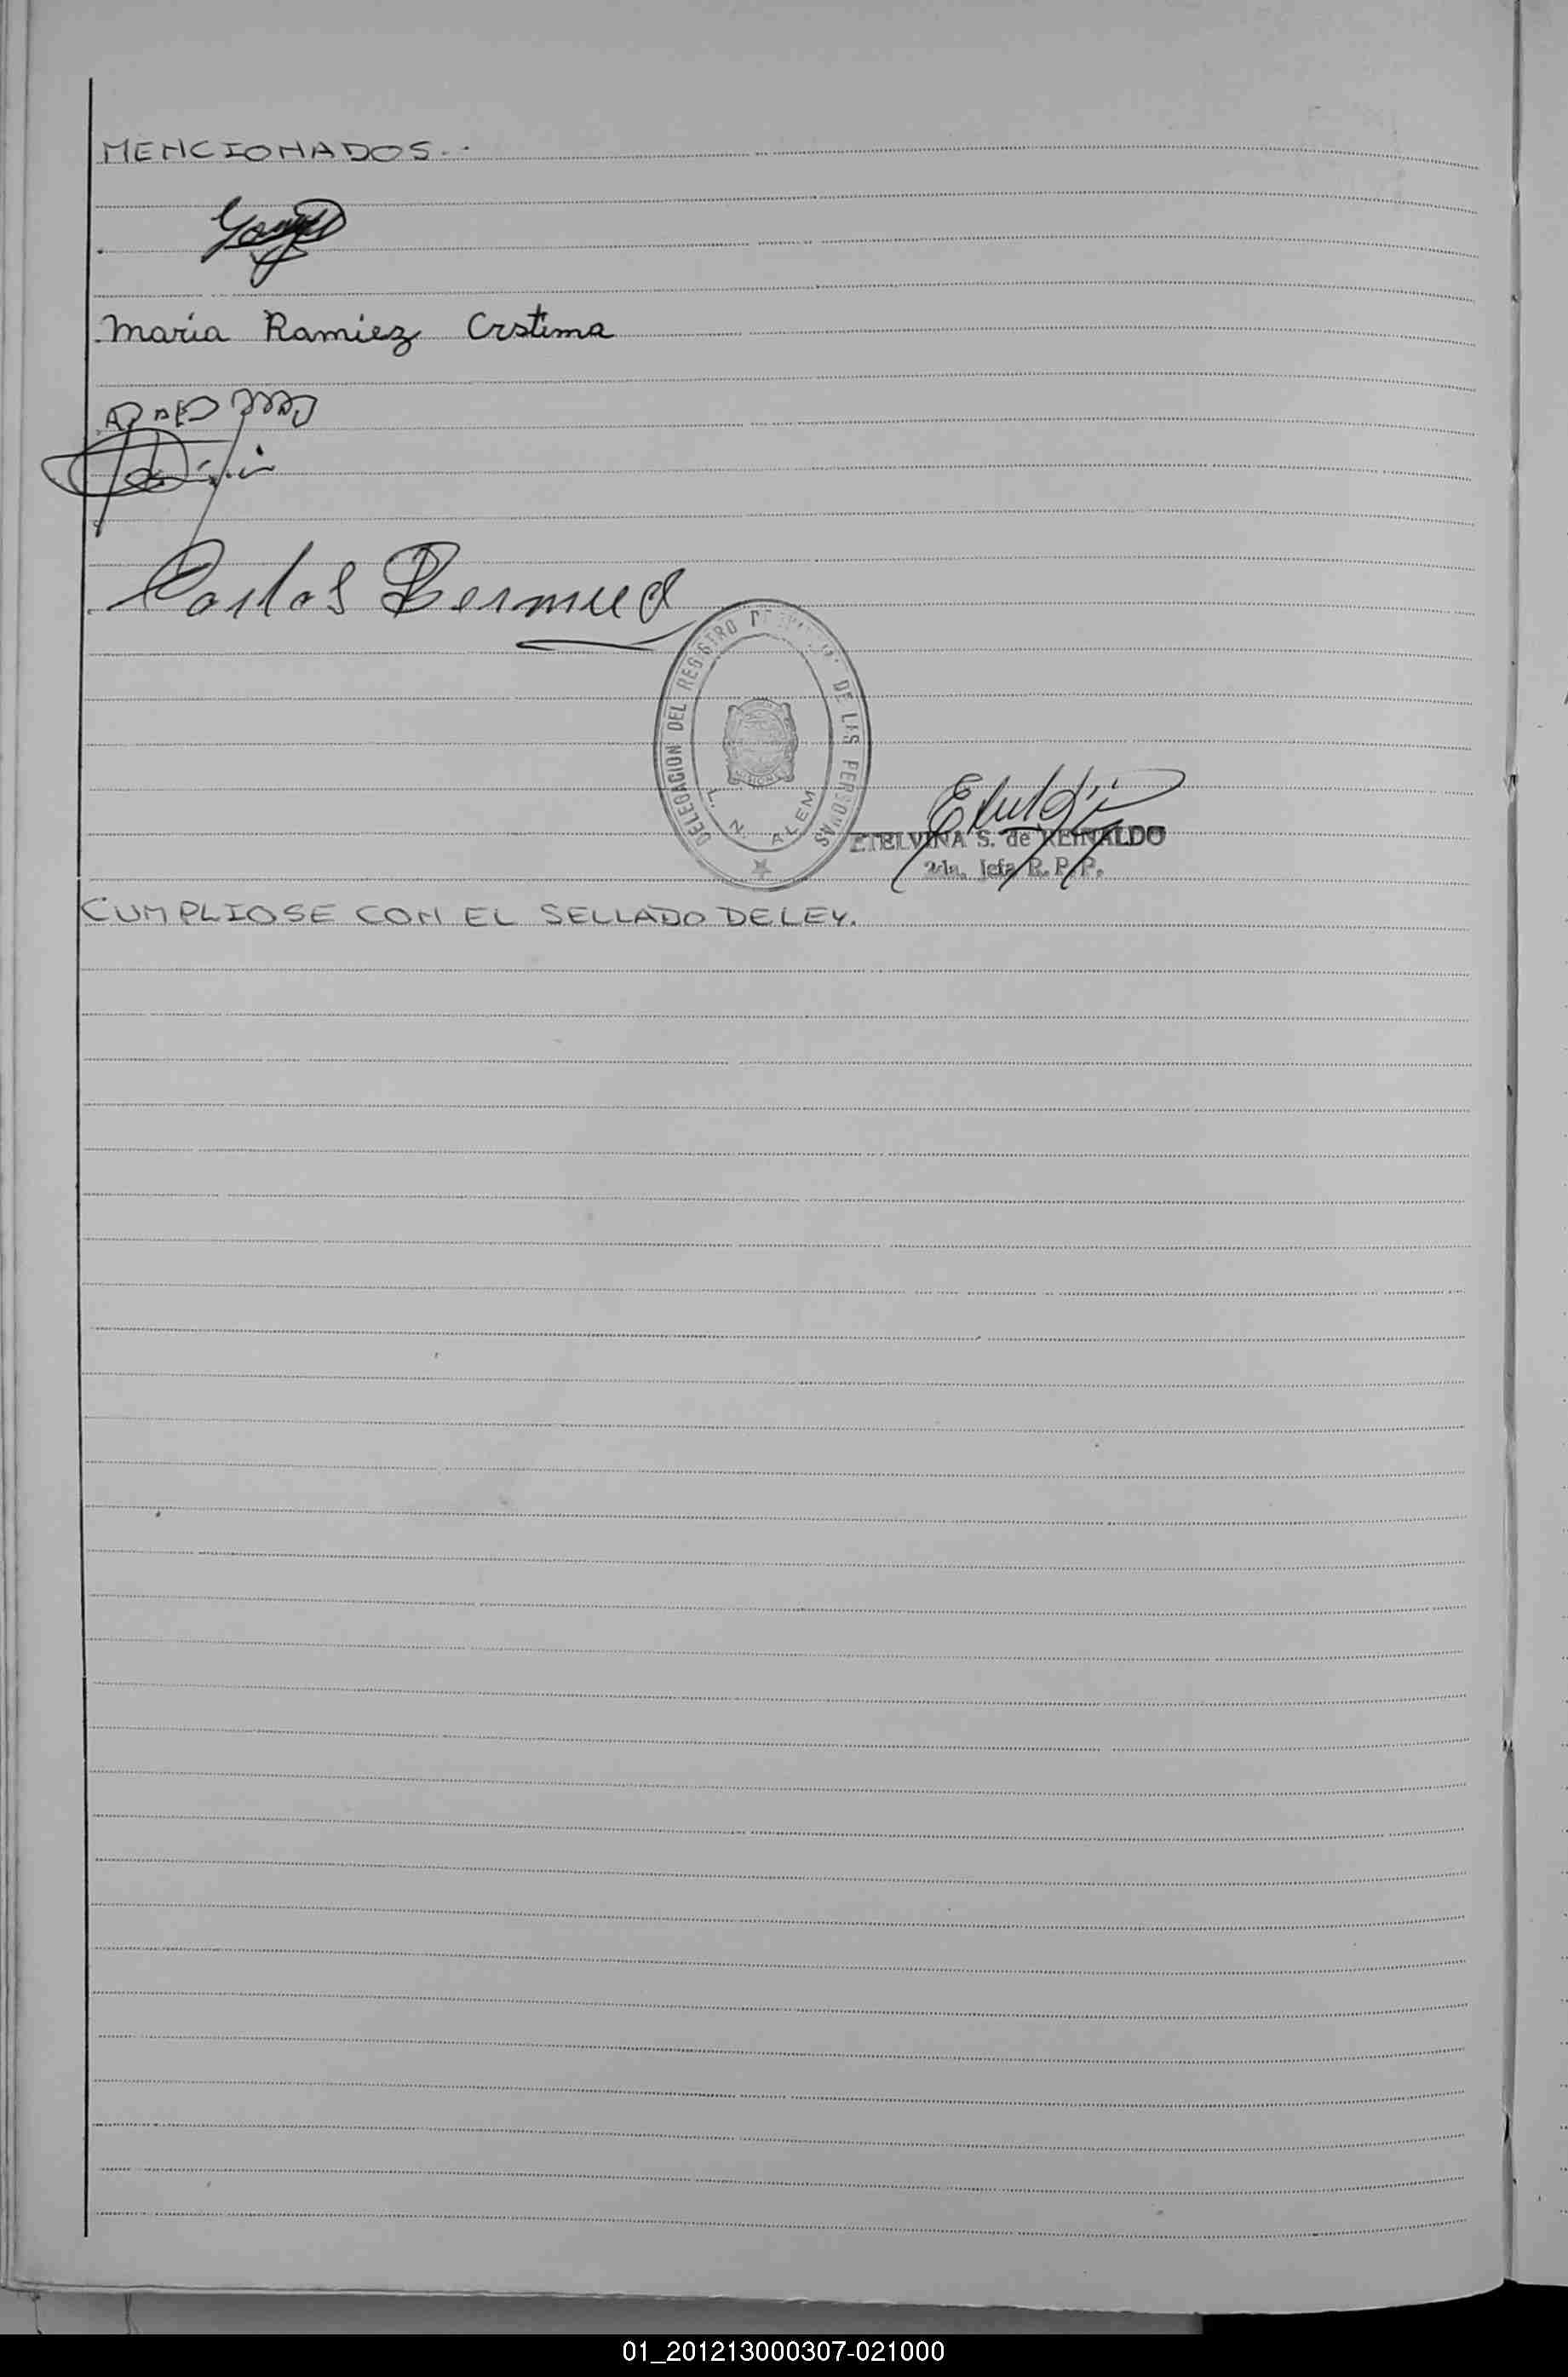 MENCIONADOS.-
maria Ramiez Crstima
Carlos Bermud
DELEGACION DEL REGISTRO DE LAS PERSONAS
L. N. ALEM
ETELVINA S. de REINALDO
2da. Jefa R. P. P.
CUMPLIOSE CON EL SELLADO DE LEY.
01_201213000307-021000